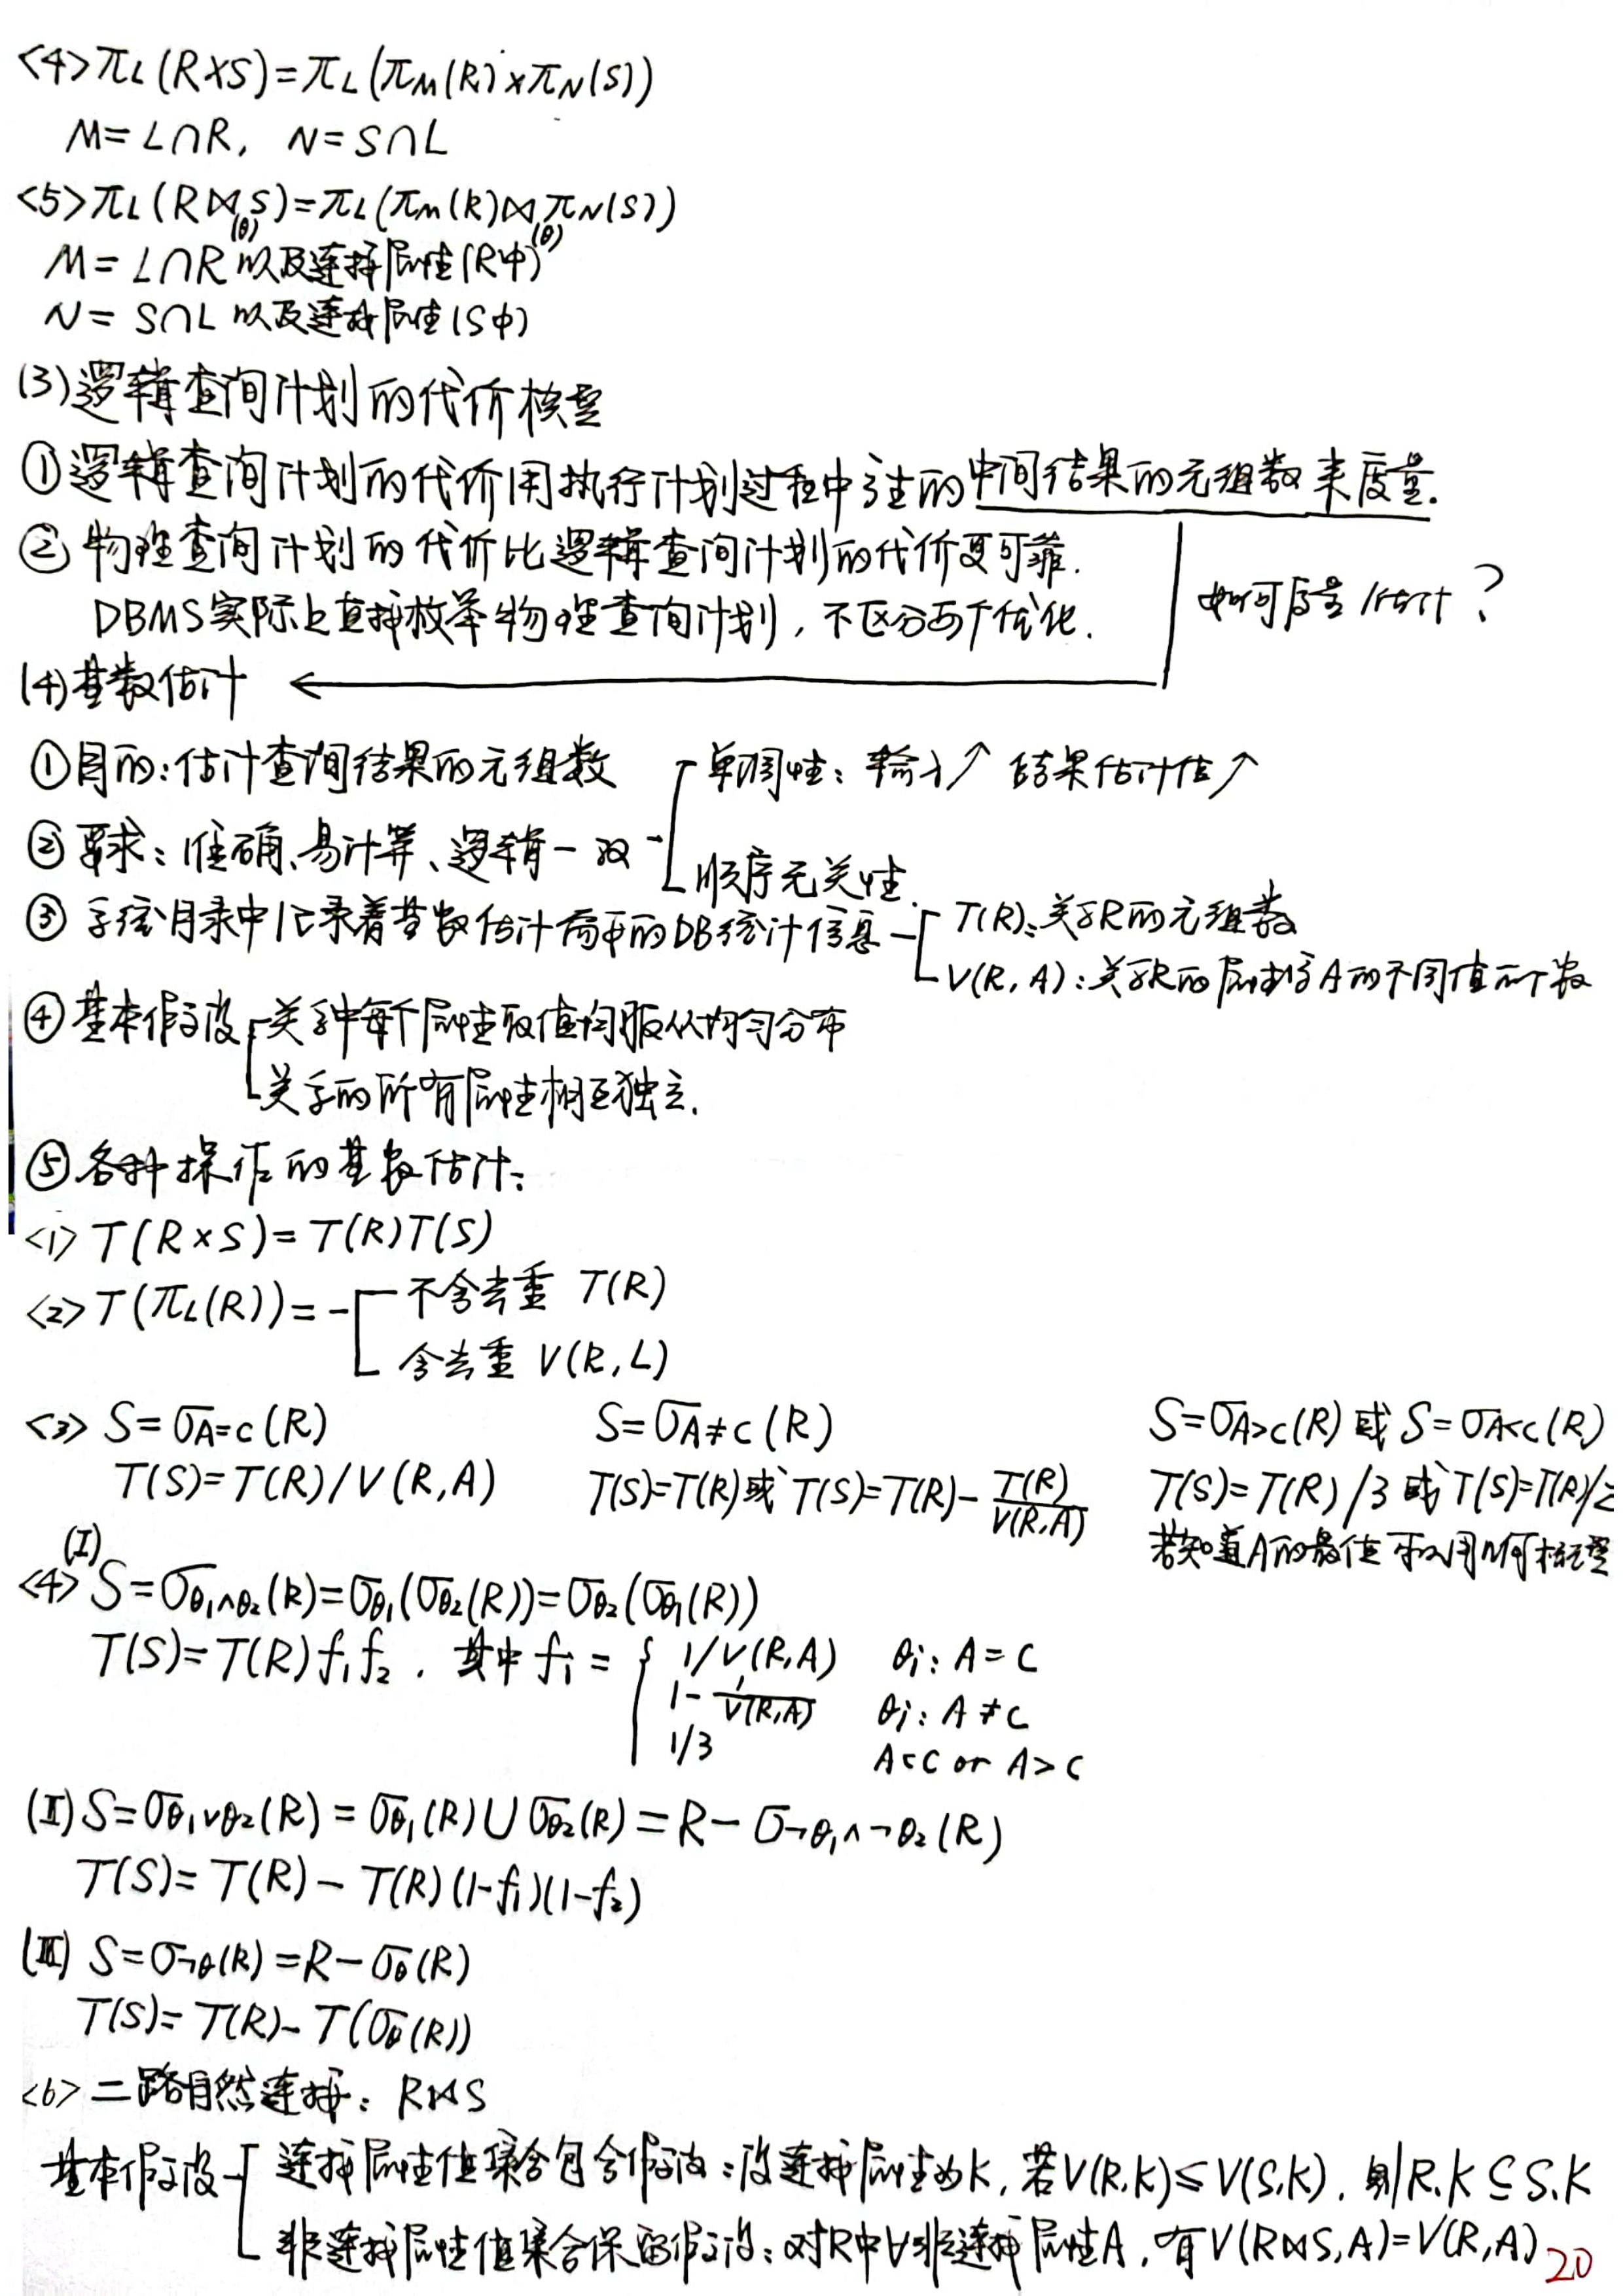 <4> πL(R×S)=πL(πM(R)×πN(S))
M=L∩R, N=S∩L
<5> πL(R⋈(θ)S)=πL(πM(R)⋈(θ)πN(S))
M=L∩R 以及连接属性(R中)
N=S∩L 以及连接属性(S中)
(3)逻辑查询计划的代价模型
①逻辑查询计划的代价用执行计划过程中产生的中间结果的元组数来度量.
②物理查询计划的代价比逻辑查询计划的代价更可靠.
DBMS实际上直接枚举物理查询计划，不区分两个优化.
如何度量/估计?
(4)基数估计
①目的:估计查询结果的元组数
②要求：准确、易计算、逻辑一致
单调性：输入↗ 结果估计值↗
顺序无关性.
③系统目录中记录着基数估计需要的DB统计信息
T(R):关系R的元组数
V(R,A):关系R的属性集A的不同值个数
④基本假设
关系中每个属性取值均服从均匀分布
关系的所有属性相互独立.
⑤各种操作的基数估计:
<1> T(R×S)=T(R)T(S)
<2> T(πL(R))=
不含去重 T(R)
含去重 V(R,L)
<3> S=σA=c(R) S=σA≠c(R) S=σA>c(R)或S=σA<c(R)
T(S)=T(R)/V(R,A) T(S)=T(R)或T(S)=T(R)-T(R)/V(R,A) T(S)=T(R)/3或T(S)=T(R)/2
若知道A的最值可以用几何概型
(I)
<4> S=σθ1∧θ2(R)=σθ1(σθ2(R))=σθ2(σθ1(R))
T(S)=T(R)f1f2. 其中fi= { 1/V(R,A) θi: A=C
1-1/V(R,A) θi: A≠C
1/3 A<C or A>C
(II) S=σθ1∨θ2(R)=σθ1(R)∪σθ2(R)=R-σ¬θ1∧¬θ2(R)
T(S)=T(R)-T(R)(1-f1)(1-f2)
(III) S=σ¬θ(R)=R-σθ(R)
T(S)=T(R)-T(σθ(R))
<6> 二路自然连接：R⋈S
基本假设
连接属性值集合包含假设:设连接属性为K,若V(R,K)≤V(S,K),则R.K⊆S.K
非连接属性值集合保留假设:对R中∀非连接属性A,有V(R⋈S,A)=V(R,A)
20